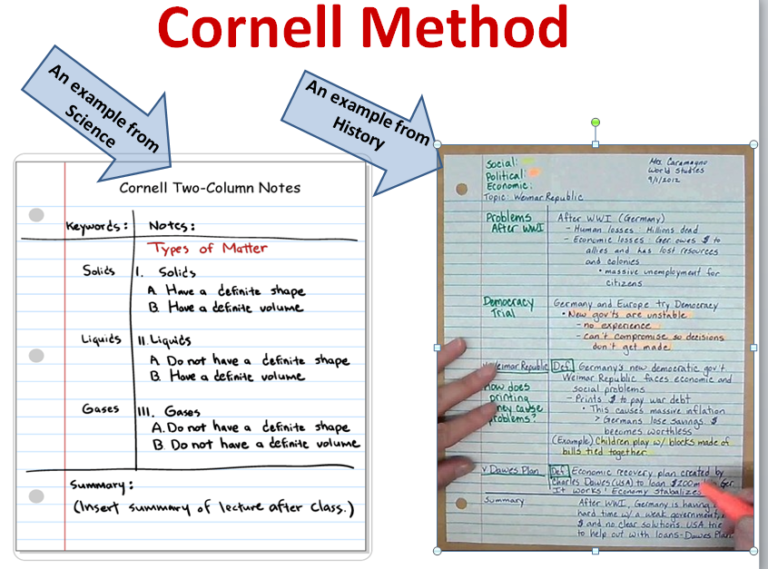 Cornell Method
An example from
Science
An example from
History
Cornell Two-Column Notes
Keywords: Notes:
Types of Matter
Solids I. Solids
A. Have a definite shape
B. Have a definite volume
Liquids II. Liquids
A. Do not have a definite shape
B. Have a definite volume
Gases III. Gases
A. Do not have a definite shape
B. Do not have a definite volume
Summary:
(Insert summary of lecture after class.)
Social:
Political:
Economic:
Topic: Weimar Republic
Mrs. Caramagno
World Studies
9/1/2012
Problems
After WWI
After WWI (Germany)
- Human losses: Millions dead
- Economic losses: Ger owes $ to
allies and has lost resources
and colonies
• massive unemployment for
citizens
Democracy
Trial
Germany and Europe try Democracy
• New gov'ts are unstable
- no experience
- can't compromise so decisions
don't get made
Weimar Republic
Def: Germany's new democratic gov't
Weimar Republic faces economic and
social problems
How does
printing
money cause
problems?
- Prints $ to pay war debt
• This causes massive inflation
> Germans lose savings. $
becomes worthless
(Example) Children play w/ blocks made of
bills tied together
v Dawes Plan
Def: Economic recovery plan created by
Charles Dawes (USA) to loan $200m Ger.
It works! Economy stabalizes
Summary
After WWI, Germany is having
hard time w/ a weak government,
$ and no clear solutions. USA trie
to help out with loans-Dawes Plan